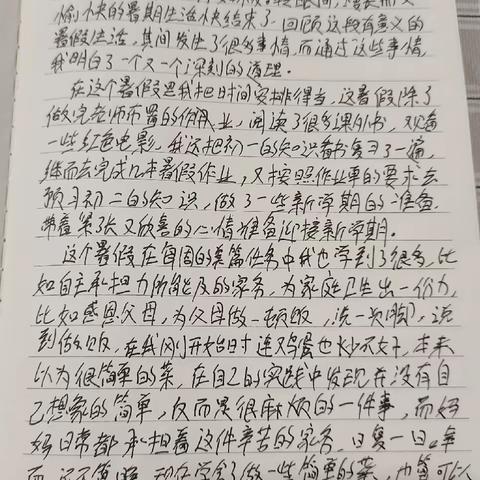 愉快的暑期生活快结束了。回顾这段有意义的
暑假生活,其间发生了很多事情,而通过这些事情,
我明白了一个又一个深刻的道理。
在这个暑假里我把时间安排得当,这暑假除了
做完老师布置的作业,阅读了很多课外书,观看
一些红色电影。我还把初一的知识看书复习了一遍,
继而去完成几本暑假作业,又按照作业单的要求去
预习初二的知识,做了一些新学期的准备。
带着紧张又欣喜的心情准备迎接新学期。
这个暑假在每周的美篇任务中我也学到了很多,比
如自主承担力所能及的家务,为家庭卫生出一份力,
比如感恩父母,为父母做一顿饭,洗一次脚,说
到做饭,在我刚开始时连鸡蛋也炒不好,本来
以为很简单的菜,在自己的实践中发现并没有自
己想象的简单,反而是很麻烦的一件事,而妈
妈日常都承担着这件辛苦的家务,日复一日,年